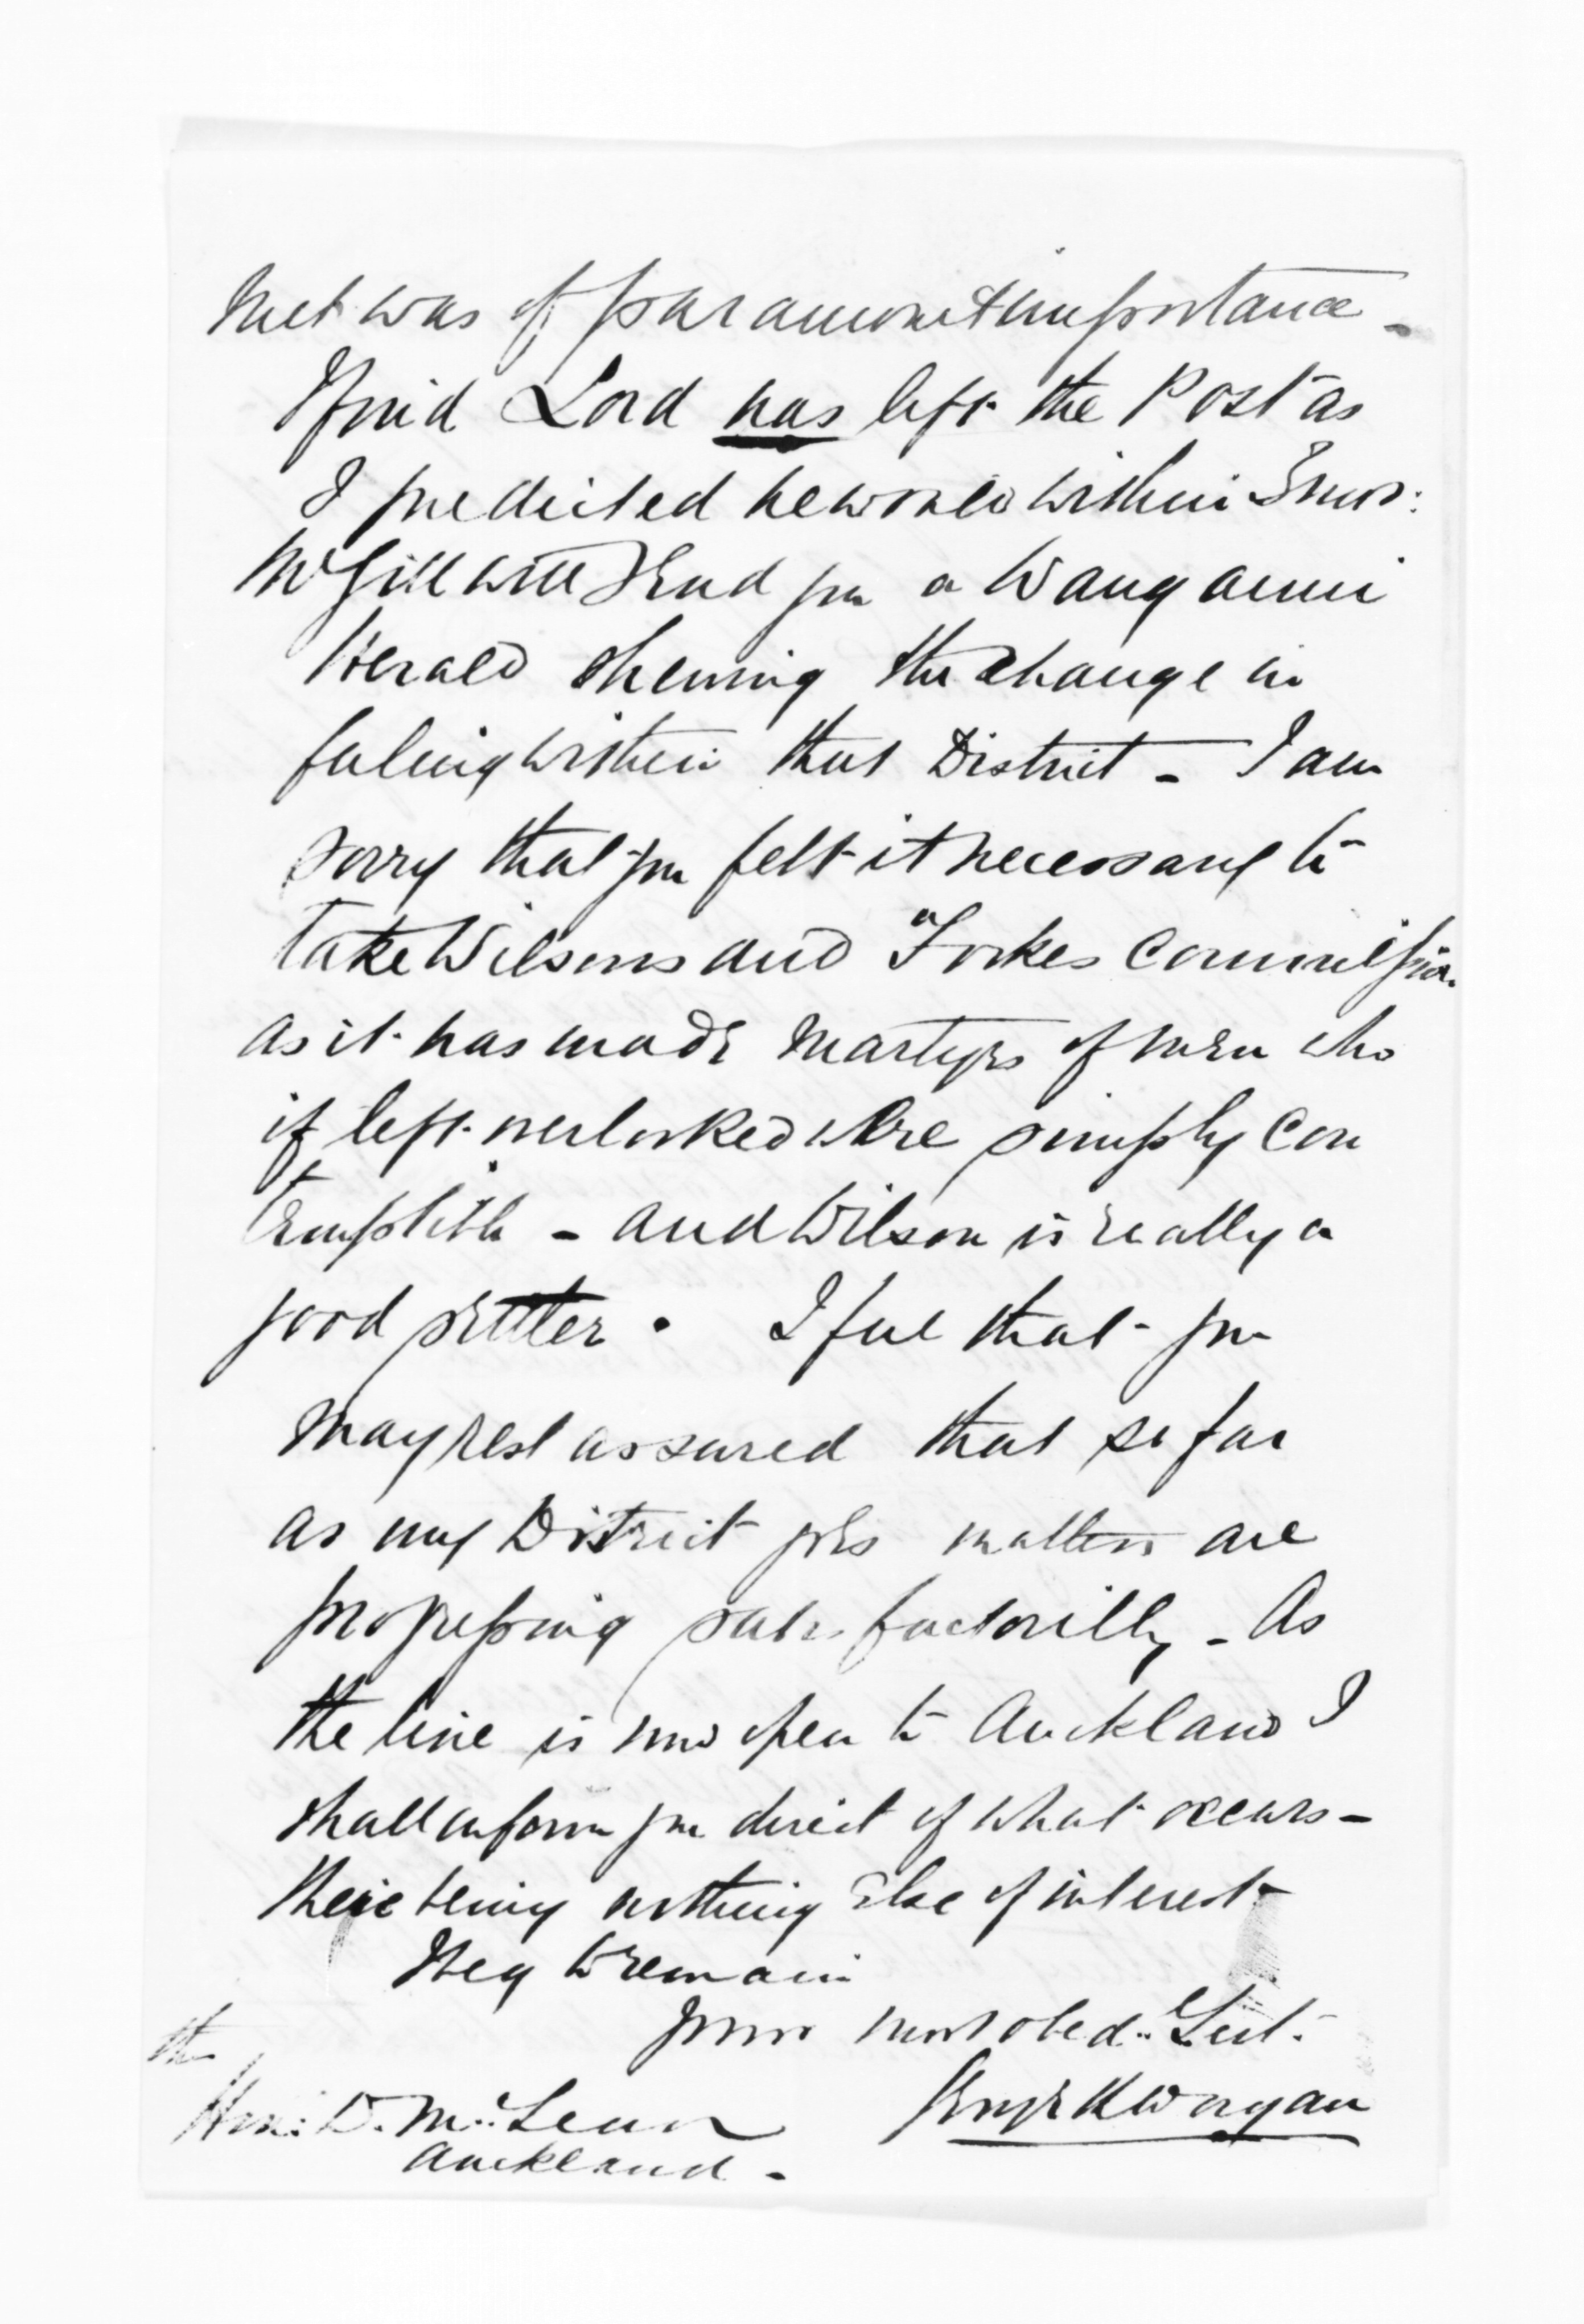 met was of paramount importance -
I find Lord has left the Post as
I predicted he would within 3 mos:
McGill will send you a Wanganui
Herald shewing the change in
feeling within that District - I am
sorry that you felt it necessary to
take Wilsons and Forkes Commission
as it has made martyrs of men who
if left overlooked were simply con
temptible - and Wilson is really a
good settler. I feel that you
may rest assured that so far
as my District goes matters are
progressing satisfactorilly - As
the line is now open to Auckland I
shall inform you direct of what occurs -
there being nothing else of interest
I beg to remain
Your most obed.. Svt.
George H Worgan
The
Hon: D. Mc.Lean
Auckland -